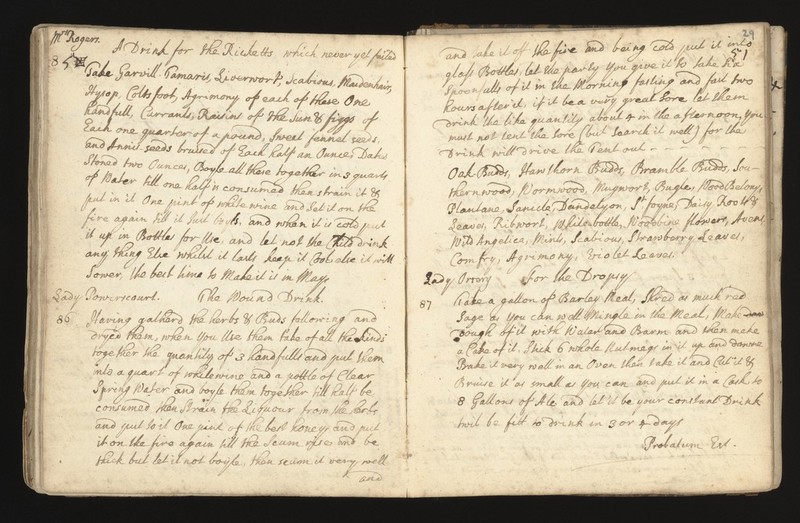 Mrs Rogers.
A Drink for the Ricketts which never yet failed
85
Take Garvill. Tamaris, Liverwort, Scabious, Maidenhair,
Hysop, Colts foot, Agrimony of each of these One
handfull, Currants, Raisins of the Sun & figgs of
Each one quarter of a pound, Sweet fennel seeds
and Annis. seeds bruised of Each half an Ounce, Dates
Stoned two Ounces, Boyle all these together in 3 quarts
of Water till one half is consumed then strain it &
put in it One pint of white wine and Set it on the
fire again till it Just boyls. and when it is cold put
it up in Bottles for Use, and let not the Child drink
any thing Else whilst it lasts keep it Cool else it will
Sower, the best time to Make it is in May
Lady Powerscourt. The Wound Drink.
86 Having gathered the herbs & Buds following and
dryed them, when You Use them take of all the kinds
together the quantity of 3 handfulls and put them
into a quart of white wine and a pottle of Clear
Spring Water and boyle them together till half be
consumed then Strain the Liquour from the herbs
and put to it One pint of the best honey, and put
it on the fire again till the Scum rises and be
thick but let it not boyle, then scum it very well
and
29
51
and take it off the fire and being cold put it into
glass Bottles, let the party you give it to take Six
Spoonfulls of it in the Morning fasting and fast two
hours after it. if it be a very great Sore let them
Drink the like quantity about 4 in the afternoon, You
must not tent the Sore (but Search it well) for the
Drink will drive the Tent out - - - - -
Oak Budds, Hawthorn Budds, Bramble Budds, Sou-
thernwood, Wormwood, Mugwort, Bugle, Wood Betony,
Plantane, Sanicle, Dandelyon, St foyne, Daisy Roots &
Leaves, Ribwort, White bottle, Woodbine flowers, Avens,
Wild Angelica, Mint, Scabious, Strawberry Leaves,
Comfry, Agrimony, Violet Leaves.
Lady Orrory for the Dropsy
87 Take a gallon of Barley Meal, Shred as much red
Sage as you can well Mingle in the Meal, Make
Dough of it with Water and Barm and then make
a Cake of it. Stick 6 whole Nutmegs in it up and downe
Bake it very well in an Oven then take it and Cut it &
Bruise it as small as you can and put it in a Cask to
8 Gallons of Ale and let it be your constant Drink
twil be fitt to drink in 3 or 4 days
Probatum Est.